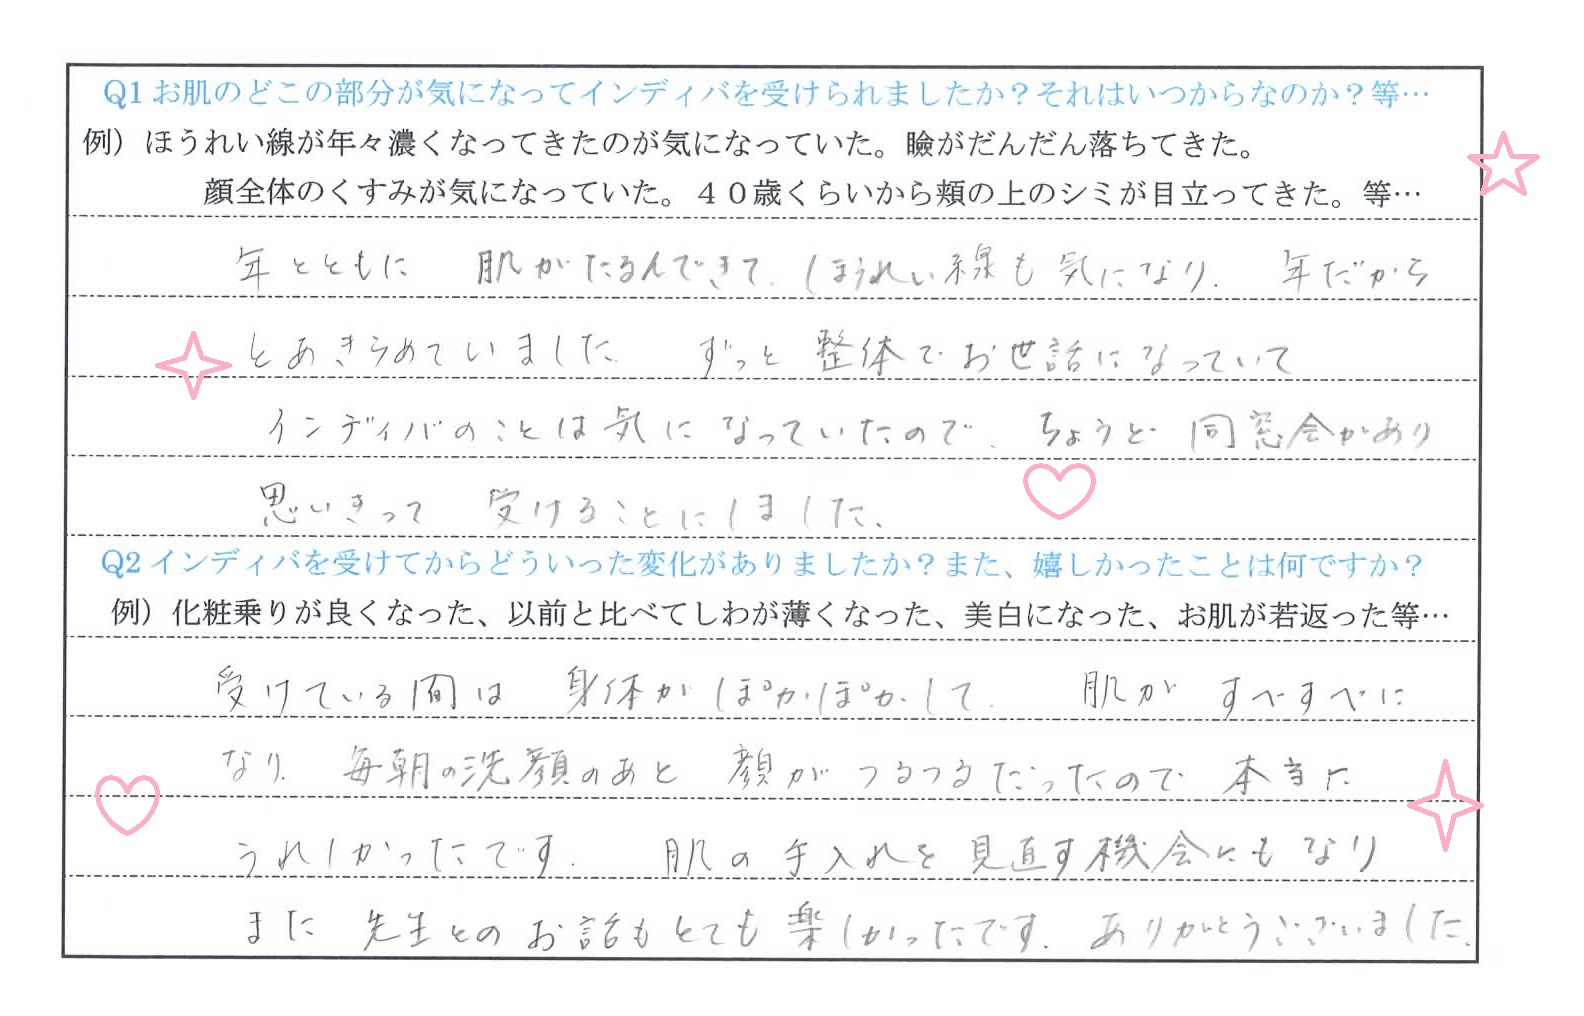 Q1 お肌のどこの部分が気になってインディバを受けられましたか？それはいつからなのか？等…
例）ほうれい線が年々濃くなってきたのが気になっていた。瞼がだんだん落ちてきた。
顔全体のくすみが気になっていた。４０歳くらいから頬の上のシミが目立ってきた。等…
年とともに 肌がたるんできて、ほうれい線も気になり、年だから
とあきらめていました。ずっと整体でお世話になっていて
インディバのことは気になっていたので、ちょうど同窓会があり
思いきって 受けることにしました。
Q2 インディバを受けてからどういった変化がありましたか？また、嬉しかったことは何ですか？
例）化粧乗りが良くなった、以前と比べてしわが薄くなった、美白になった、お肌が若返った等…
受けている間は 身体がぽかぽかして、肌が すべすべに
なり、毎朝の洗顔のあと 顔がつるつるだったので 本当に
うれしかったです。肌の手入れを見直す機会にもなり
また 先生とのお話もとても楽しかったです。ありがとうございました。